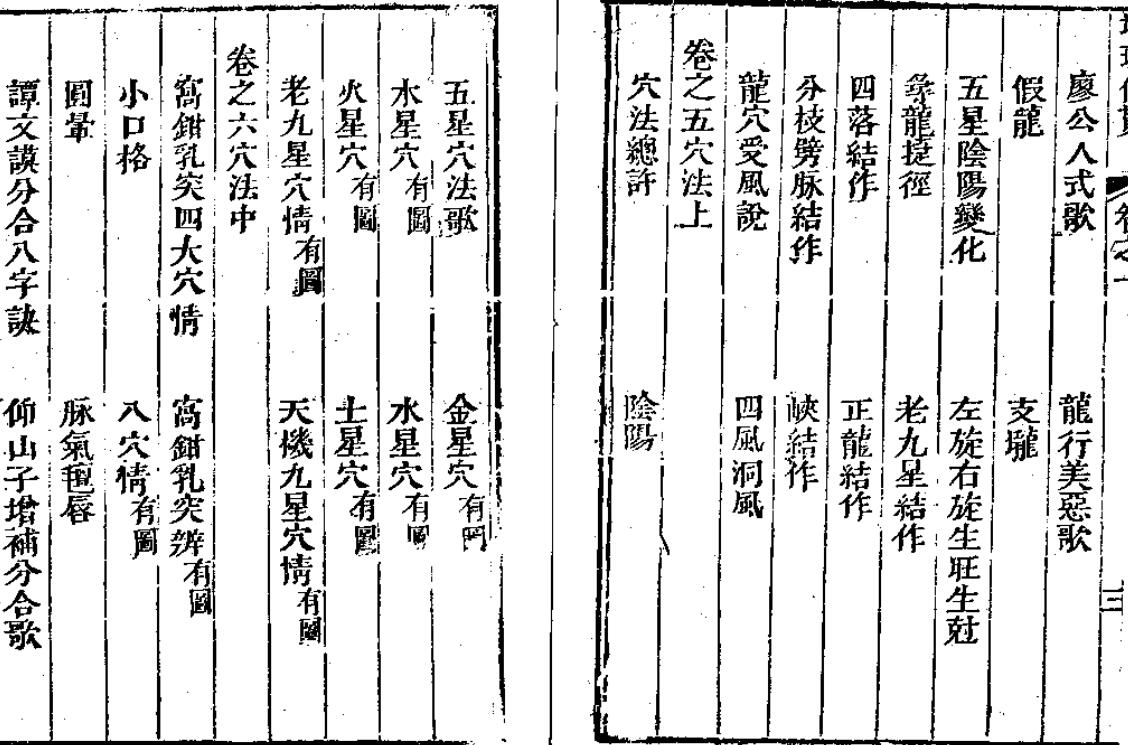 廖公人式歌 龍行美惡歌
假龍 支壠
五星陰陽變化 左旋右旋生旺生尅
尋龍捷徑 老九星結作
四落結作 正龍結作
分枝劈脉結作 峽結作
龍穴受風說 四風洞風
卷之五穴法上
穴法總訐 陰陽
五星穴法歌 金星穴有圖
木星穴有圖 水星穴有圖
火星穴有圖 土星穴有圖
老九星穴情有圖 天機九星穴情有圖
卷之六穴法中
窩鉗乳突四大穴情 窩鉗乳突辨有圖
小口格 八穴情有圖
圓暈 脉氣毬唇
譚文謨分合八字訣 仰山子增補分合歌